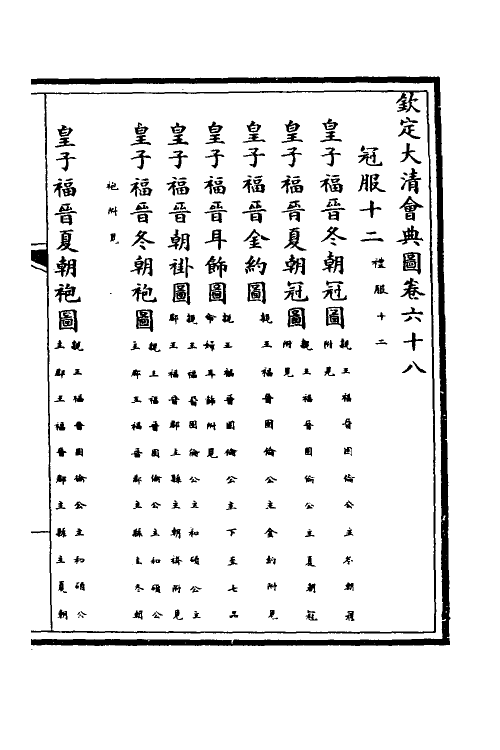 欽定大清會典圖卷六十八
冠服十二禮服十二
皇子福晉冬朝冠圖親王福晉固倫公主冬朝冠附見
皇子福晉夏朝冠圖親王福晉固倫公主夏朝冠附見
皇子福晉金約圖親王福晉固倫公主金約附見
皇子福晉耳飾圖親王福晉固倫公主下至七品命婦耳飾附見
皇子福晉朝褂圖親王福晉固倫公主和碩公主郡王福晉郡主縣主朝褂附見
皇子福晉冬朝袍圖親王福晉固倫公主和碩公主郡王福晉郡主縣主冬朝
袍附見
皇子福晉夏朝袍圖親王福晉固倫公主和碩公主郡王福晉郡主縣主夏朝